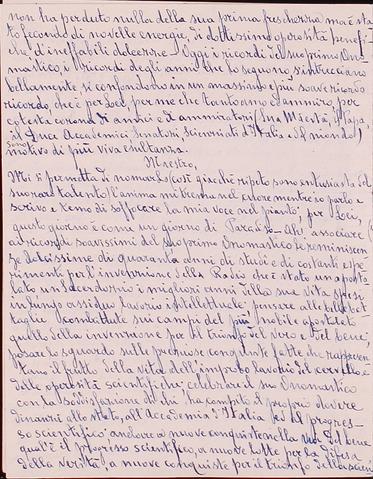 non ha perduto nulla della sua prima freschezza ma è sta-
to fecondo di novelle energie, di dottissime operosità benefi-
che d'ineffabili dolcezze. Oggi i ricordi del suo primo Ono-
mastico, i ricordi degli anni che lo seguono s'intrecciano
bellamente, si confondono in un soave ricordo
ricordo, che è per Lei, per me che tanto amo ed ammiro, per
cotesta corona di amici ed ammiratori (Sua Maestà, il Papa,
il Duce Accademici Senatori scienziati d'Italia e del mondo)
sono motivo di più viva esultanza.
Maestro,
Mi si permetta di nomarlo così giacché ripeto sono entusiasta del
suo raro talento l'anima mi trema nel cuore mentre io parlo e
scrivo e temo di soffocare la mia voce nel pianto, per Lei,
questo giorno è come un giorno di Paradiso. Ah! associare
ai ricordi soavissimi del suo primo Onomastico le reminiscen-
ze dolcissime di quaranta anni di studi e di costanti espe-
rimenti per l'invenzione della Radio che è stato un aposto-
lato un sacerdozio i migliori anni della sua vita spesi
in lungo assiduo lavorio intellettuale: pensare alle belle bat-
taglie combattute sui campi del più nobile apostolato
quello della invenzione per il trionfo del vero e del bene,
posare lo sguardo sulle preziose conquiste fatte che rappresen-
tano il frutto della vita dell'improbo lavorio del cervello e
delle operosità scientifiche; celebrare il suo Onomastico
con la soddisfazione di chi ha compiuto il proprio dovere
dinanzi allo stato, all'Accademia d'Italia ed al progres-
so scientifico; anelare a nuove conquiste nella via del bene
qual'è il progresso scientifico, a nuove lotte per la difesa
della verità, a nuove conquiste per il trionfo della scien